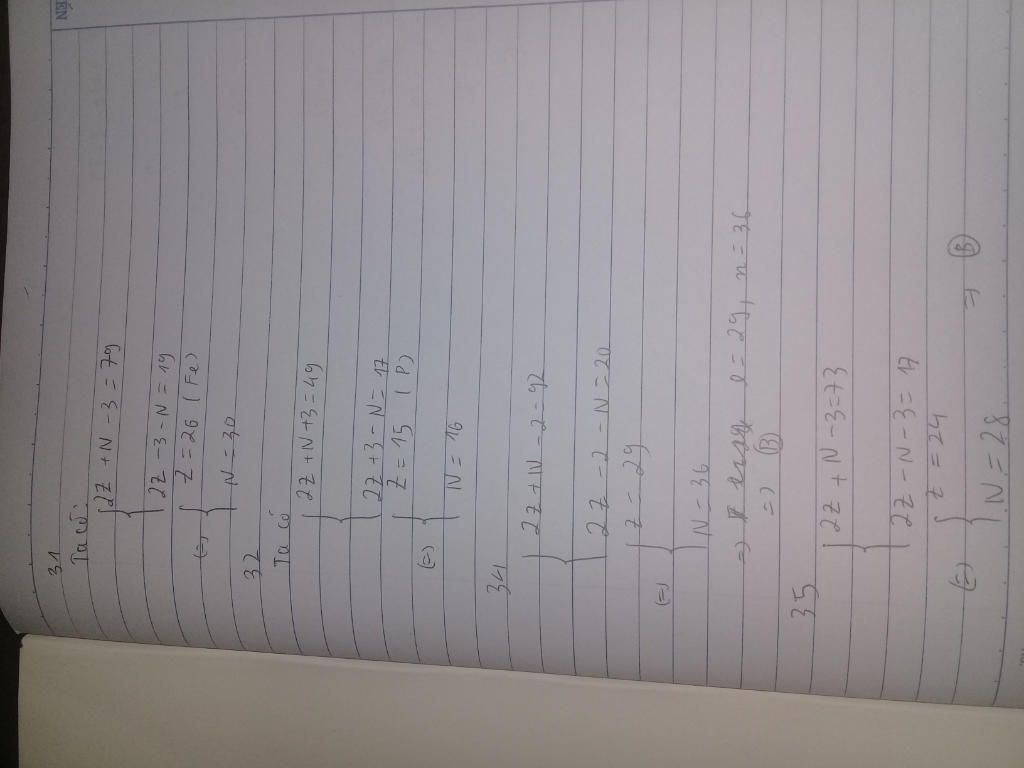 31
Ta có:
2Z + N - 3 = 79
2Z - 3 - N = 19
(=) Z = 26 (Fe)
N = 30
32
Ta có
2Z + N + 3 = 49
2Z + 3 - N = 17
(=) Z = 15 (P)
N = 16
34
2Z + N - 2 = 92
2Z - 2 - N = 20
(=) Z = 29
N = 36
=) e = 29, n = 36
=) B
35
2Z + N - 3 = 73
2Z - N - 3 = 17
(=) Z = 24
N = 28 =) B